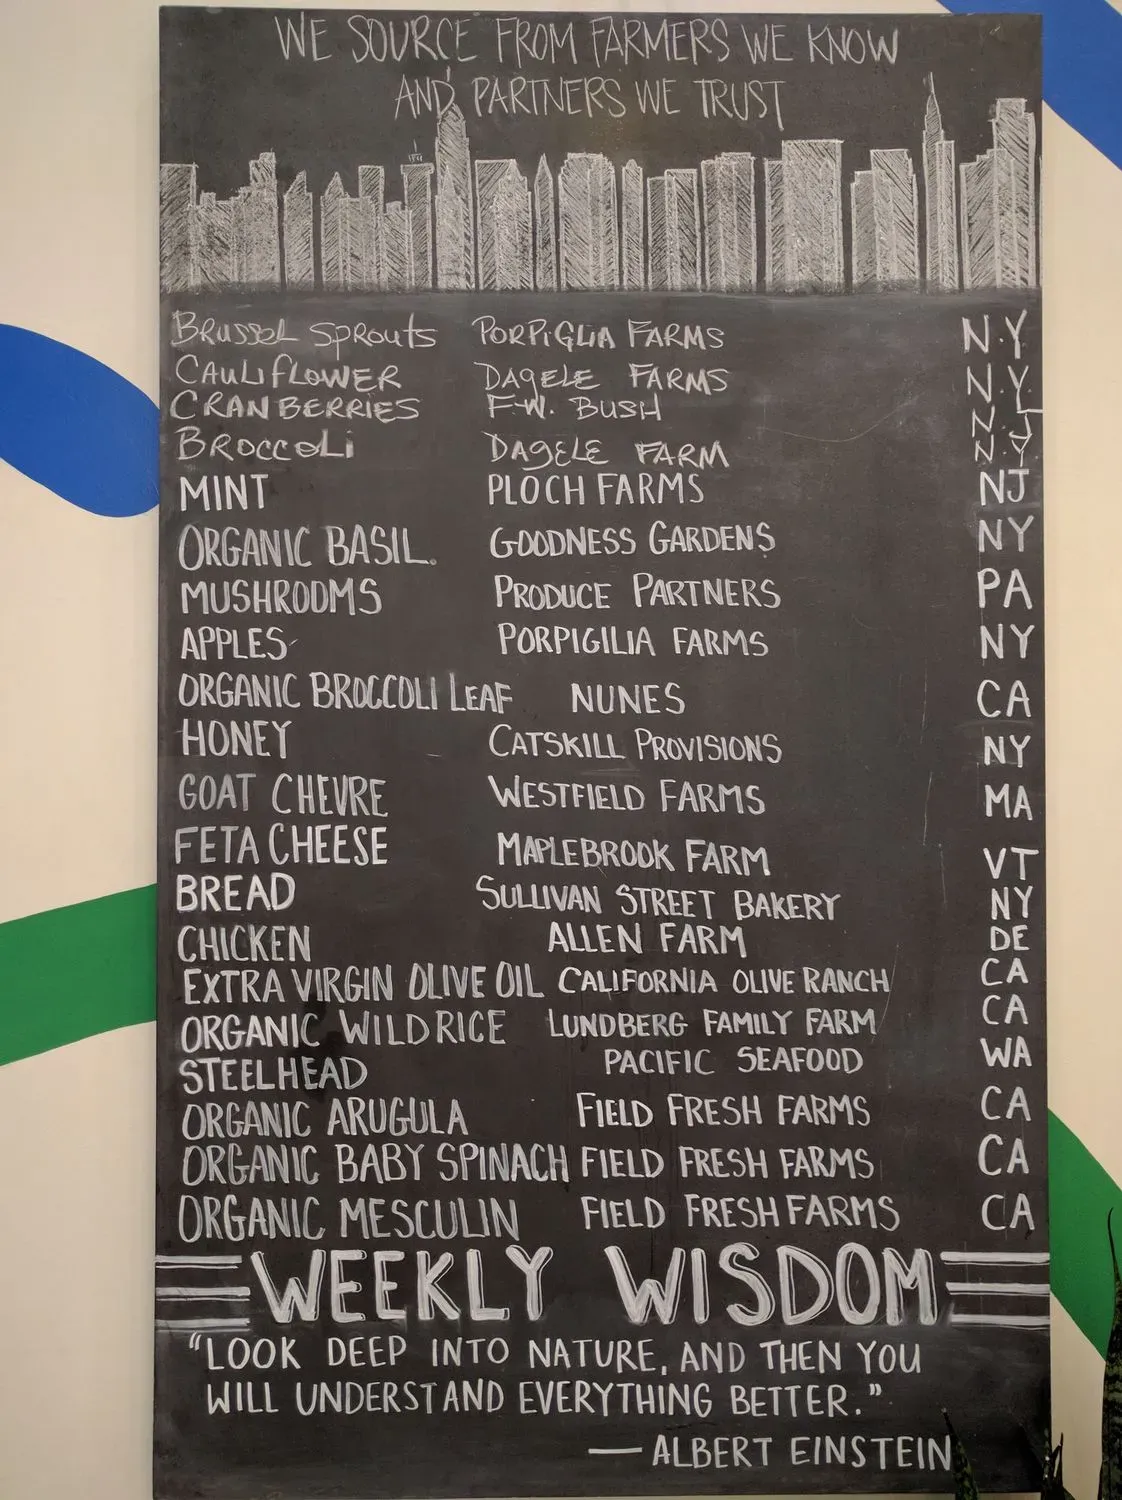 WE SOURCE FROM FARMERS WE KNOW
AND PARTNERS WE TRUST
BRUSSEL SPROUTS PORPIGLIA FARMS N.Y
CAULIFLOWER DAGELE FARMS N.Y.
CRANBERRIES F.W. BUSH NJ
BROCCOLI DAGELE FARM N.Y
MINT PLOCH FARMS NJ
ORGANIC BASIL. GOODNESS GARDENS NY
MUSHROOMS PRODUCE PARTNERS PA
APPLES PORPIGILIA FARMS NY
ORGANIC BROCCOLI LEAF NUNES CA
HONEY CATSKILL PROVISIONS NY
GOAT CHEVRE WESTFIELD FARMS MA
FETA CHEESE MAPLEBROOK FARM VT
BREAD SULLIVAN STREET BAKERY NY
CHICKEN ALLEN FARM DE
EXTRA VIRGIN OLIVE OIL CALIFORNIA OLIVE RANCH CA
ORGANIC WILD RICE LUNDBERG FAMILY FARM CA
STEELHEAD PACIFIC SEAFOOD WA
ORGANIC ARUGULA FIELD FRESH FARMS CA
ORGANIC BABY SPINACH FIELD FRESH FARMS CA
ORGANIC MESCULIN FIELD FRESH FARMS CA
WEEKLY WISDOM
"LOOK DEEP INTO NATURE, AND THEN YOU
WILL UNDERSTAND EVERYTHING BETTER."
— ALBERT EINSTEIN